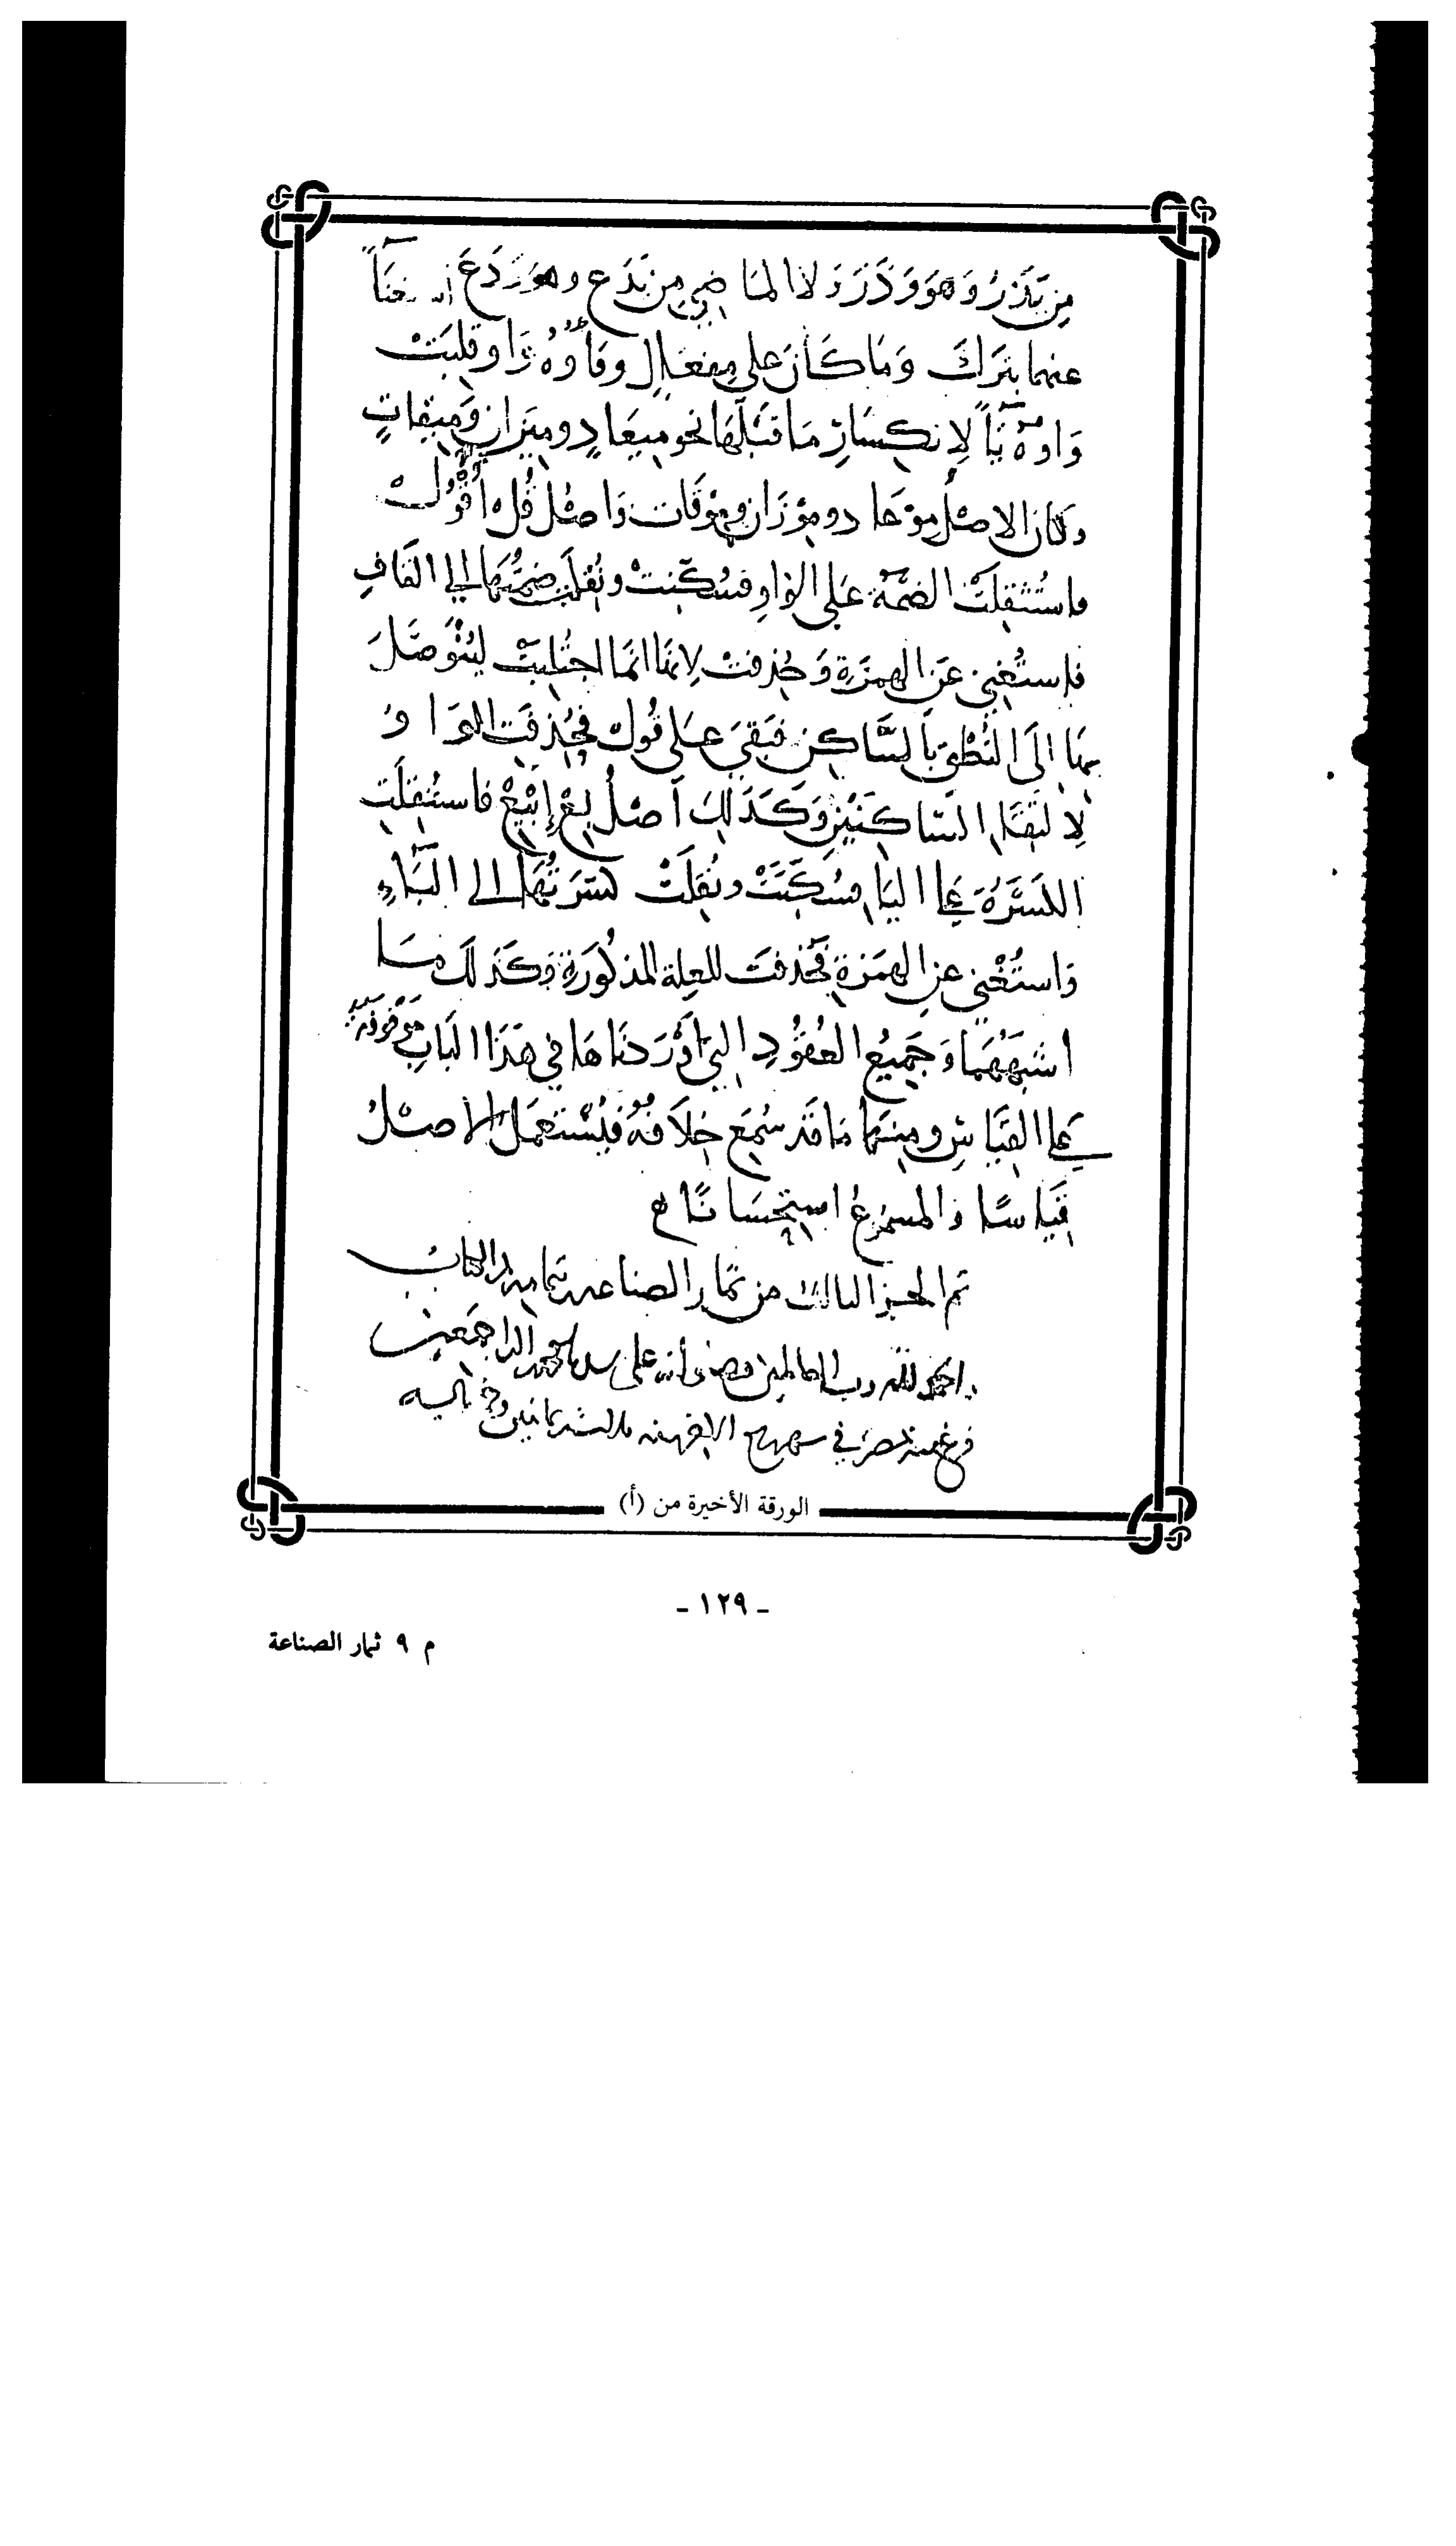 مِن يَذَرُ وَهُوَ وَذَرَ وَلا الماضي من يَدَع وهو وَدَعَ استغناً
عنهما بتَرَكَ وَمَا كَانَ على مِفعَالٍ وفَاؤُهُ وَاو قُلِبَتْ
وَاوهُ يَآً لاِنكِسَارِ مَا قَبْلَهَا نحو مِيعَادٍ ومِيزَانٍ وَمِيقاتٍ
وكان الاصْلُ مِوْعاد ومِوْزَان ومِوْقَات وَاصْلُ قُلْ اُقْوُلْ
فاستُثقِلَت الضمّة عَلى الوَاوِ فسُكّنتْ ونُقلت ضمّتُهَا إلى القَافِ
فاستُغنِيَ عَن الهمزَةِ وَحُذِفتْ لِانها انما اجتُلِبَتْ ليُتَوَصَّلَ
بِهَا الى النُّطْقِ بالسَّاكِن فبَقِيَ عَلى قُولْ فحُذِفَت الوَاوُ
لِالتِقَاءِ السَّاكِنَيْنِ وَكَذَلِكَ اَصْلُ بِعْ إبْيِعْ فاستُثقِلَتِ
الكَسْرَةُ على اليَاءِ فسُكِّنَتْ ونُقِلَتْ كسرَتُهَا إلى البَاءِ
وَاستُغْنِيَ عن الهمَزةِ فحُذِفَت للعِلة المذكُورَةِ وَكَذلك مَا
اشبَهَهُمَا وَجَمِيعُ العُقُودِ التي اَوْرَدنَاهَا في هَذا البَابِ مَوْقُوفَة
على القِيَاسِ ومِنهَا مَا قَد سُمِعَ خِلاَفُهُ فيُسْتَعمَلُ الاصْلُ
قِيَاسًا والمسمُوعُ استِحْسَانًا
تم الجزء الثالث من ثمار الصناعة بتمامه الكتاب
والحمد لله رب العالمين وصلى الله على سيدنا محمد واله اجمعين
فرغ منه نصر في
الورقة الأخيرة من (أ)
- ١٢٩ -
م ٩ ثمار الصناعة